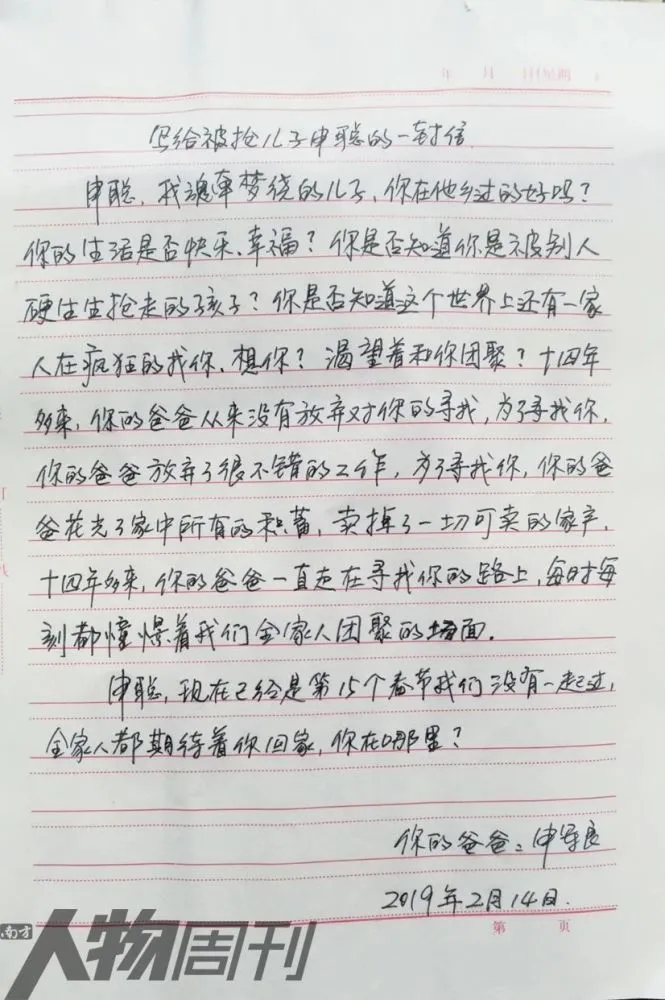 年 月 日(星期 )
写给被抢儿子申聪的一封信
申聪,我魂牵梦绕的儿子,你在他乡过的好吗?
你的生活是否快乐、幸福?你是否知道你是被别人
硬生生抢走的孩子?你是否知道这个世界上还有一家
人在疯狂的找你、想你?渴望着和你团聚?十四年
多来,你的爸爸从来没有放弃对你的寻找,为了寻找你,
你的爸爸放弃了很不错的工作,为了寻找你,你的爸
爸花光了家中所有的积蓄,卖掉了一切可卖的家产,
十四年多来,你的爸爸一直走在寻找你的路上,每时每
刻都憧憬着我们全家人团聚的场面。
申聪,现在已经是第15个春节我们没有一起过,
全家人都期待着你回家,你在哪里?
你的爸爸:申军良
2019年2月14日.
第 页
南方人物周刊